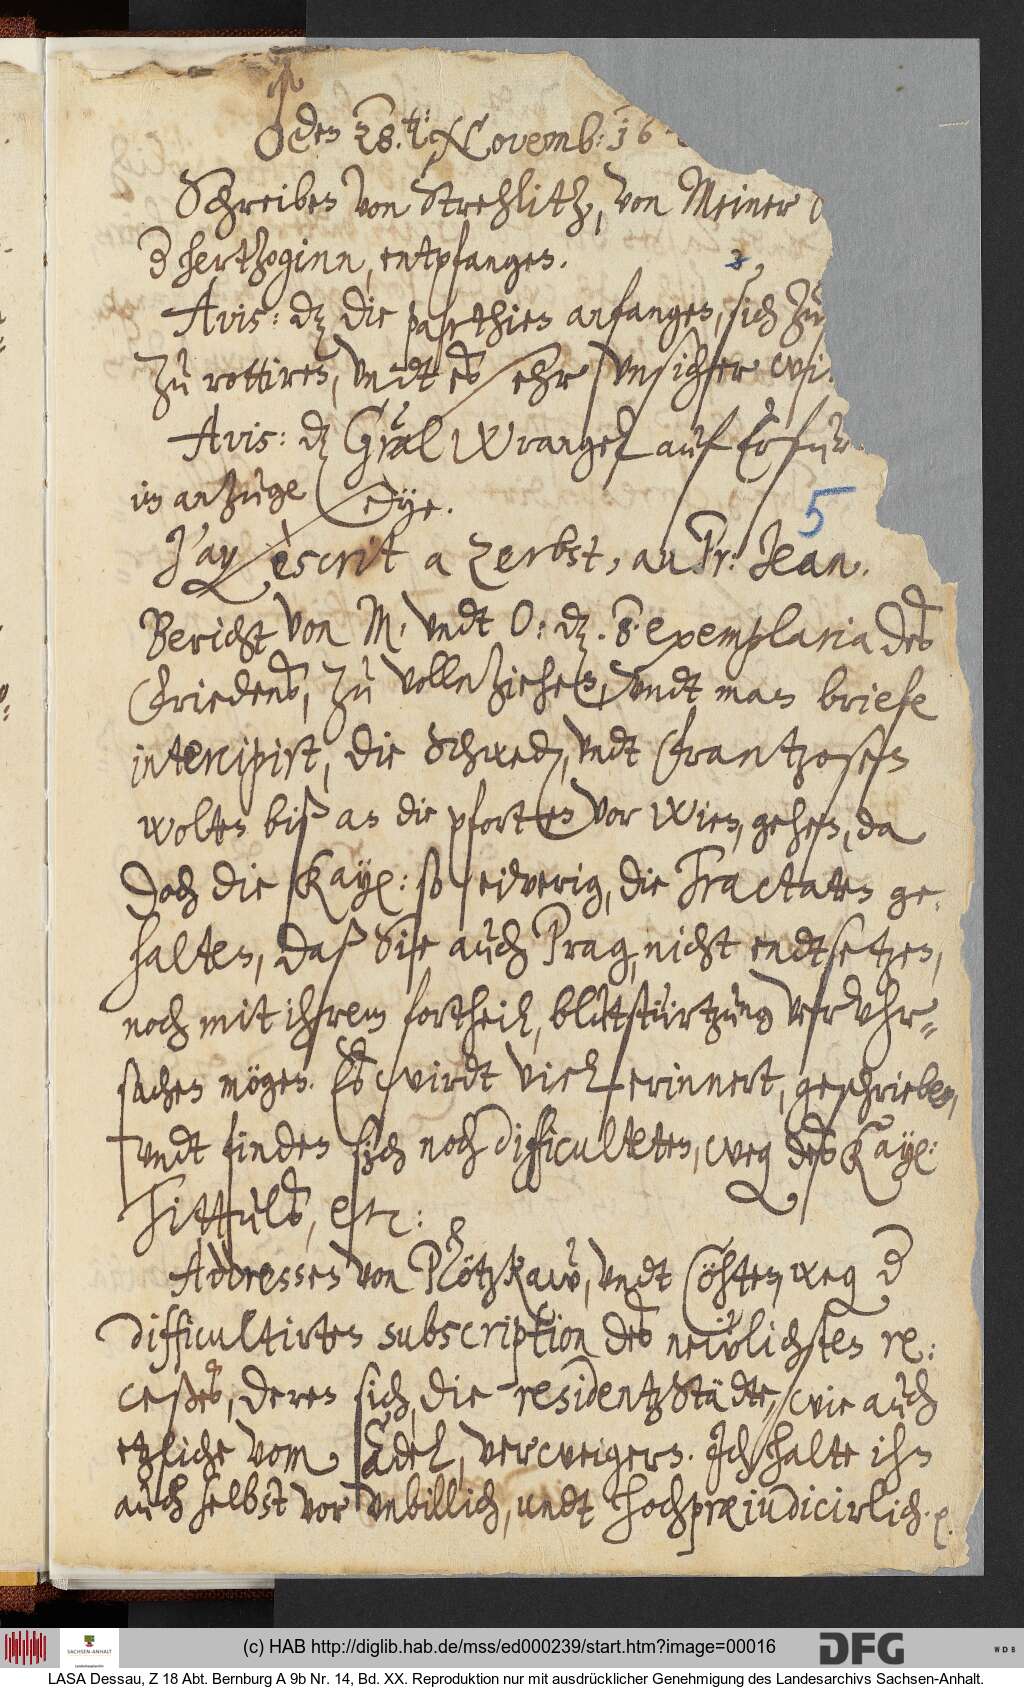 ♂ den 28.t: Novemb: 16
Schreiben von Strehlitz, von Meiner
d hertzoginn, entpfangen.
3
Avis: dz die parthien anfangen, sich zu
zu rottiren, undt es sehr unsicher wi
Avis: dz Gnäl Wrangel auf Erfur
im anzuge seye.
5
J'ay escrit a Zerbst, au Pr: Jean.
Bericht von M. undt O: dz. 8. exemplaria des
Friedens, zu vollnziehen, undt man briefe
intercipirt, die Schwed, undt Frantzosen
wolten biß an die pforten vor Wien, gehen, da
doch die Kayl: so eiverig, die Tractaten ge-
halten, daß Sie auch Prag, nicht endtsetzen,
noch mit ihrem fortheil, blutstürtzung veruhr=
sachen mögen. Es wirdt viel erinnert, geschrieben,
undt finden sich noch difficulteten, weg des Kayl:
Tittuls, etc:
Addressen von Plötzkaw, undt Cöhten, weg d
difficultirten subscription des newlichsten re:
ceßes, deren sich, die residentzStädte, wie auch
etzliche vom Adel, verweigern. Ich halte ihn
auch selbst vor unbillich, undt hochpræjudicirlich. p.
(c) HAB http://diglib.hab.de/mss/ed000239/start.htm?image=00016
SACHSEN-ANHALT
DFG
WDB
LASA Dessau, Z 18 Abt. Bernburg A 9b Nr. 14, Bd. XX. Reproduktion nur mit ausdrücklicher Genehmigung des Landesarchivs Sachsen-Anhalt.